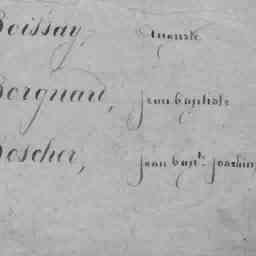 Boissay, Auguste
Borgnard, jean baptiste
Boscher, jean bapt.te joachim